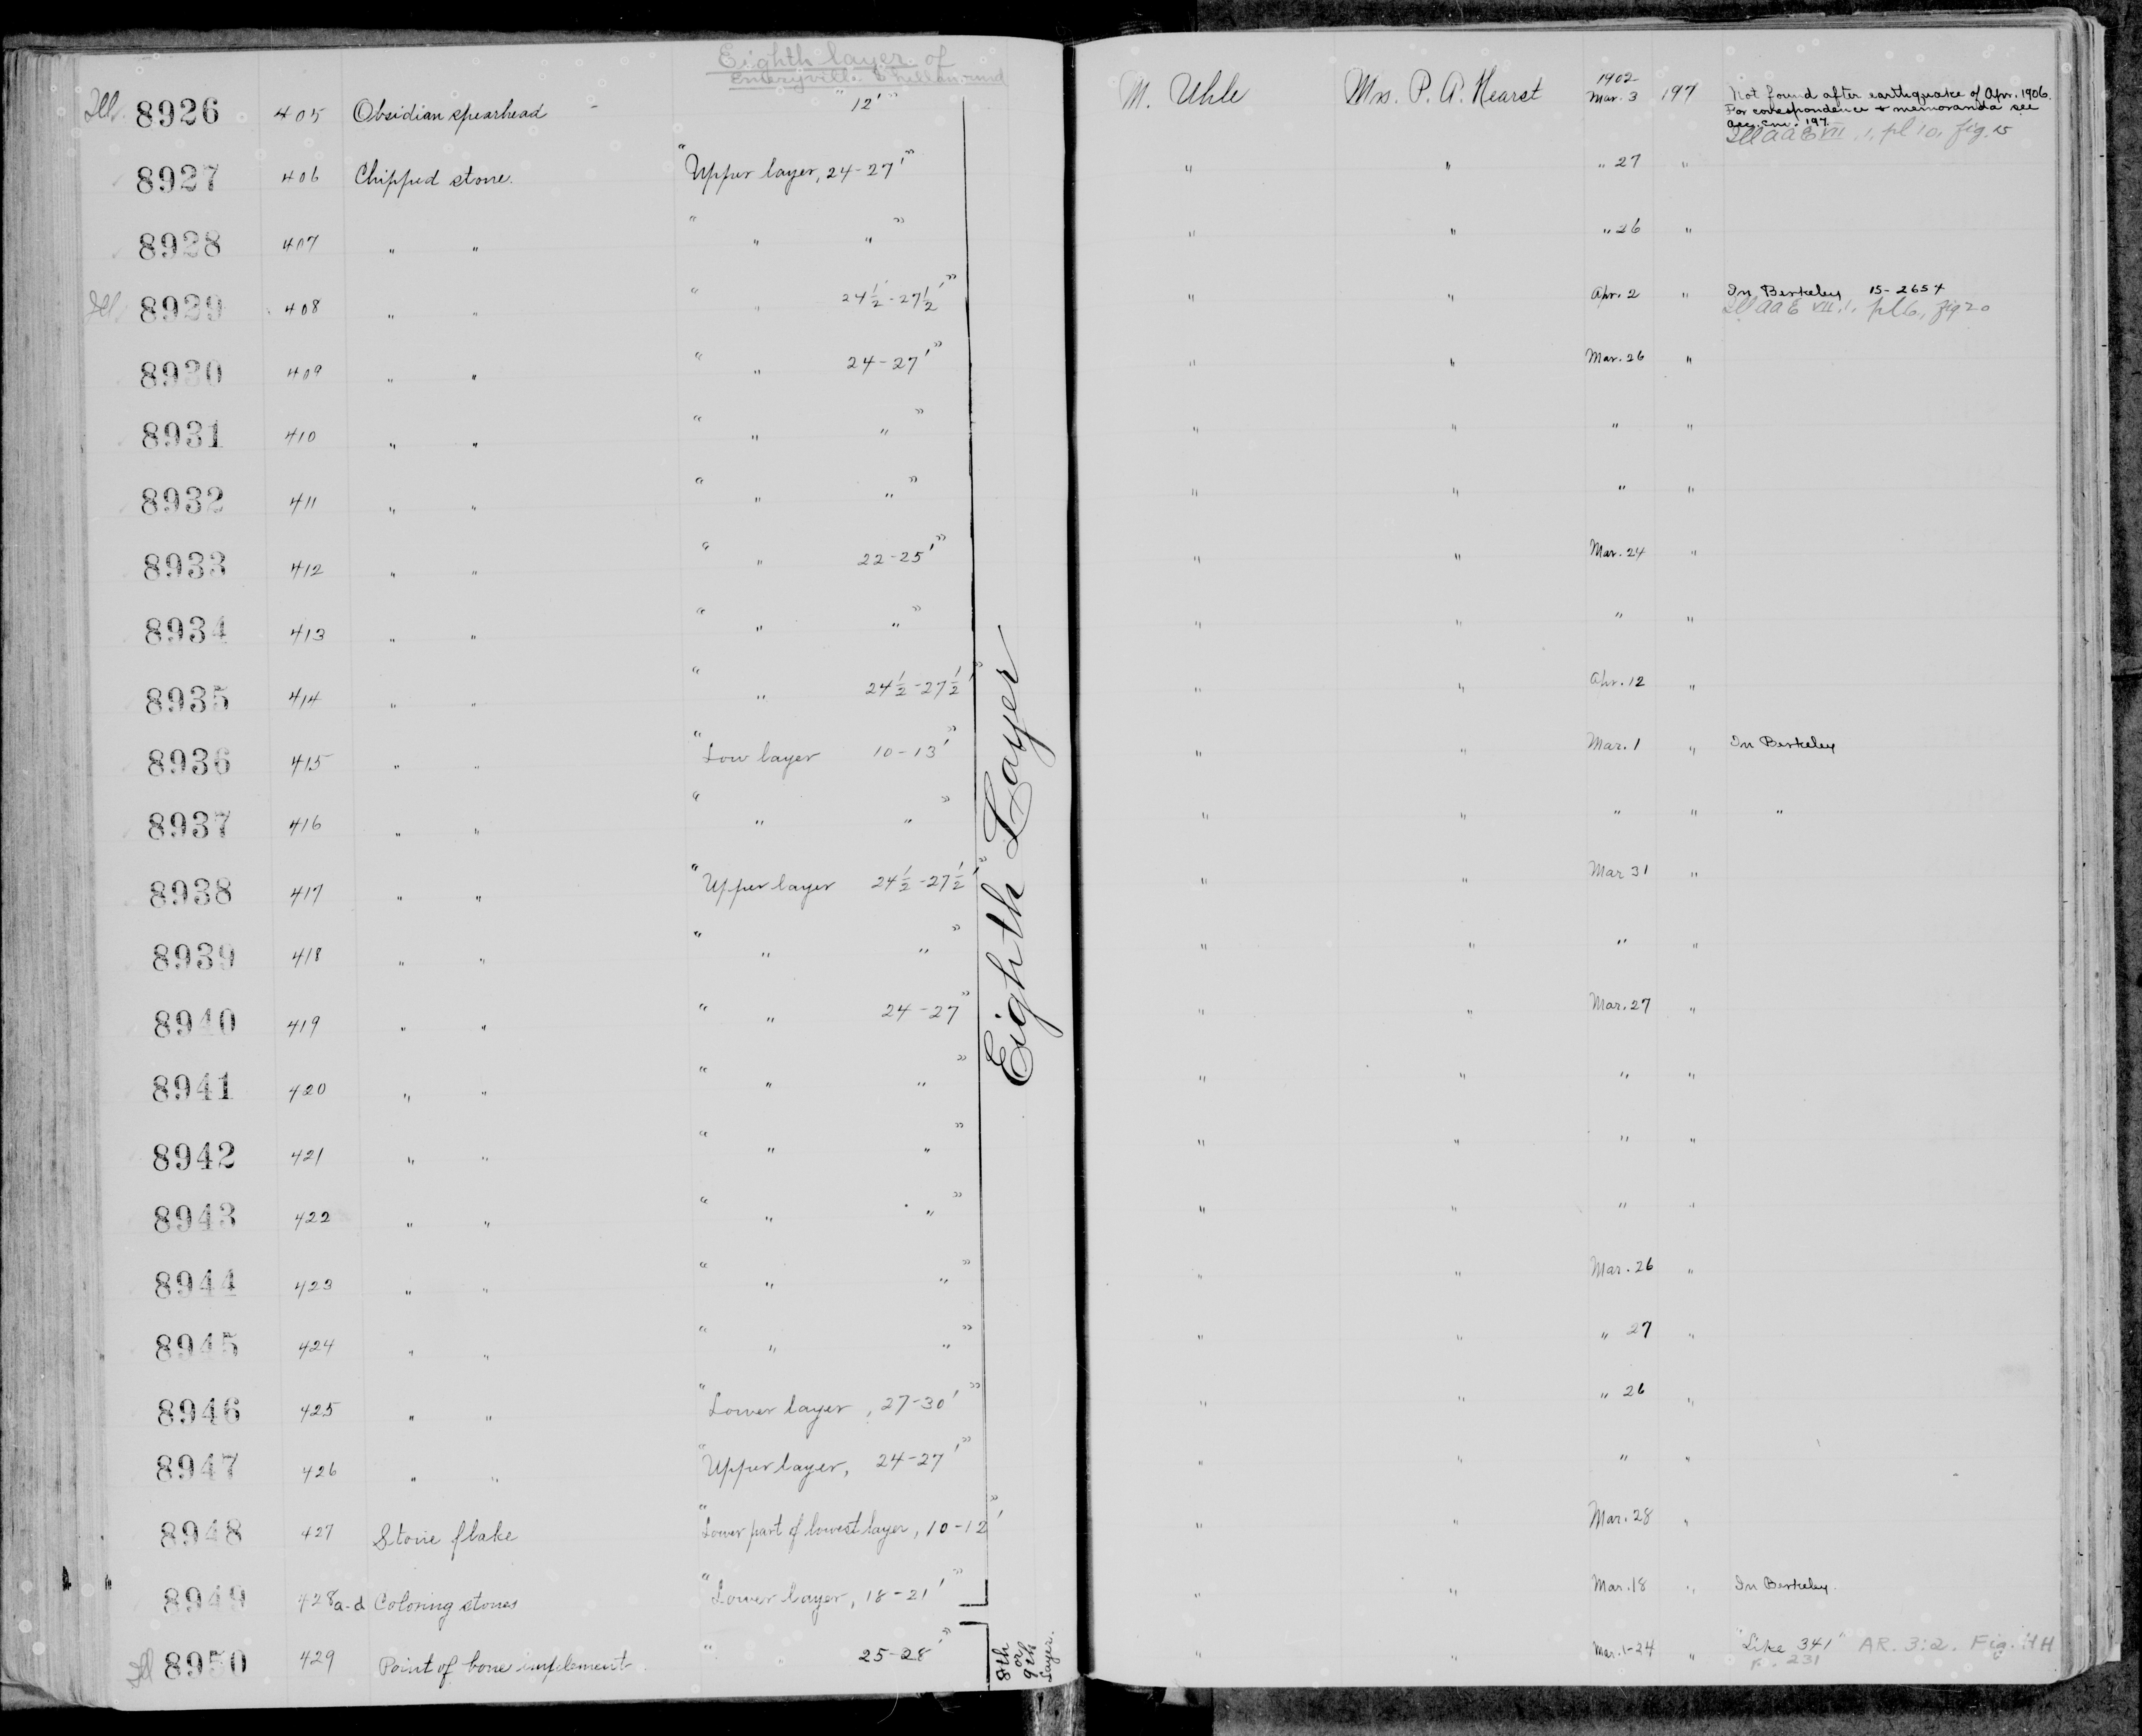 Eighth layer of
Emeryville Shellmound
Ill. 8926 405 Obsidian spearhead - " 12' " M. Uhle Mrs. P. A. Hearst 1902 Mar. 3 197 Not found after earthquake of Apr. 1906.
For correspondence & memoranda see
acc. env. 197.
Ill AAE VII, 1, pl 10, fig. 15
8927 406 Chipped stone. "Upper layer, 24-27'" " " " 27 "
8928 407 " " " " " " " " " 26 "
Ill. 8929 408 " " " " 24½-27½'" " " Apr. 2 " In Berkeley 15-2654
Ill AAE VII, 1, pl 6, fig 20
8930 409 " " " " 24-27'" " " Mar. 26 "
8931 410 " " " " " " " " " "
8932 411 " " " " " " " " " "
8933 412 " " " " 22-25'" " " Mar. 24 "
8934 413 " " " " " " " " " "
8935 414 " " " " 24½-27½'" " " Apr. 12 "
8936 415 " " "Low layer 10-13'" " " Mar. 1 " In Berkeley
8937 416 " " " " " " " " " " "
8938 417 " " "Upper layer 24½-27½'" " " Mar 31 "
8939 418 " " " " " " " " " "
8940 419 " " " " 24-27" " " Mar. 27 "
8941 420 " " " " " " " " " "
8942 421 " " " " " " " " " "
8943 422 " " " " " " " " " "
8944 423 " " " " " " " " Mar. 26 "
8945 424 " " " " " " " " " 27 "
8946 425 " " "Lower layer, 27-30'" " " " 26 "
8947 426 " " "Upper layer, 24-27'" " " " "
8948 427 Stone flake "Lower part of lowest layer, 10-12'" " " Mar. 28 "
8949 428a-d Coloring stones "Lower layer, 18-21'" " " Mar. 18 " In Berkeley.
Ill 8950 429 Point of bone implement. " " 25-28'" " " Mar. 1-24 " "Like 341" AR. 3:2. Fig. 4H
p. 231
Eighth Layer
8th
or
9th
Layer.